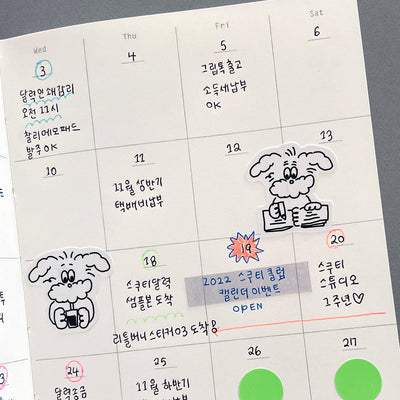 Wed
Thu
Fri
Sat
3
4
5
6
달력인쇄감리
오전 11시
찰리메모패드
발주 OK
그림톡출고
소득세납부
OK
10
11
12
13
11월 상반기
택배비납부
18
19
20
스쿠티달력
샘플본 도착
2022 스쿠티클럽
캘린더이벤트
OPEN
스쿠티
스튜디오
1주년♡
리틀버니스티커03 도착
24
25
26
27
달력송금
11월 하반기